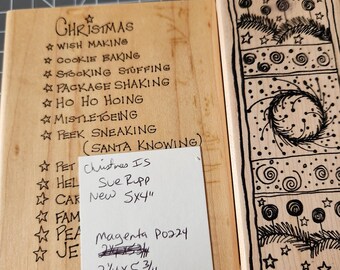 CHRISTMAS
WISH MAKING
COOKIE BAKING
STOCKING STUFFING
PACKAGE SHAKING
HO HO HOING
MISTLETOEING
PEEK SNEAKING
(SANTA KNOWING)
PET
HEL
CAR
FAM
PEA
JE
Christmas IS
Sue Rupp
New 5x4"
Magenta P0224